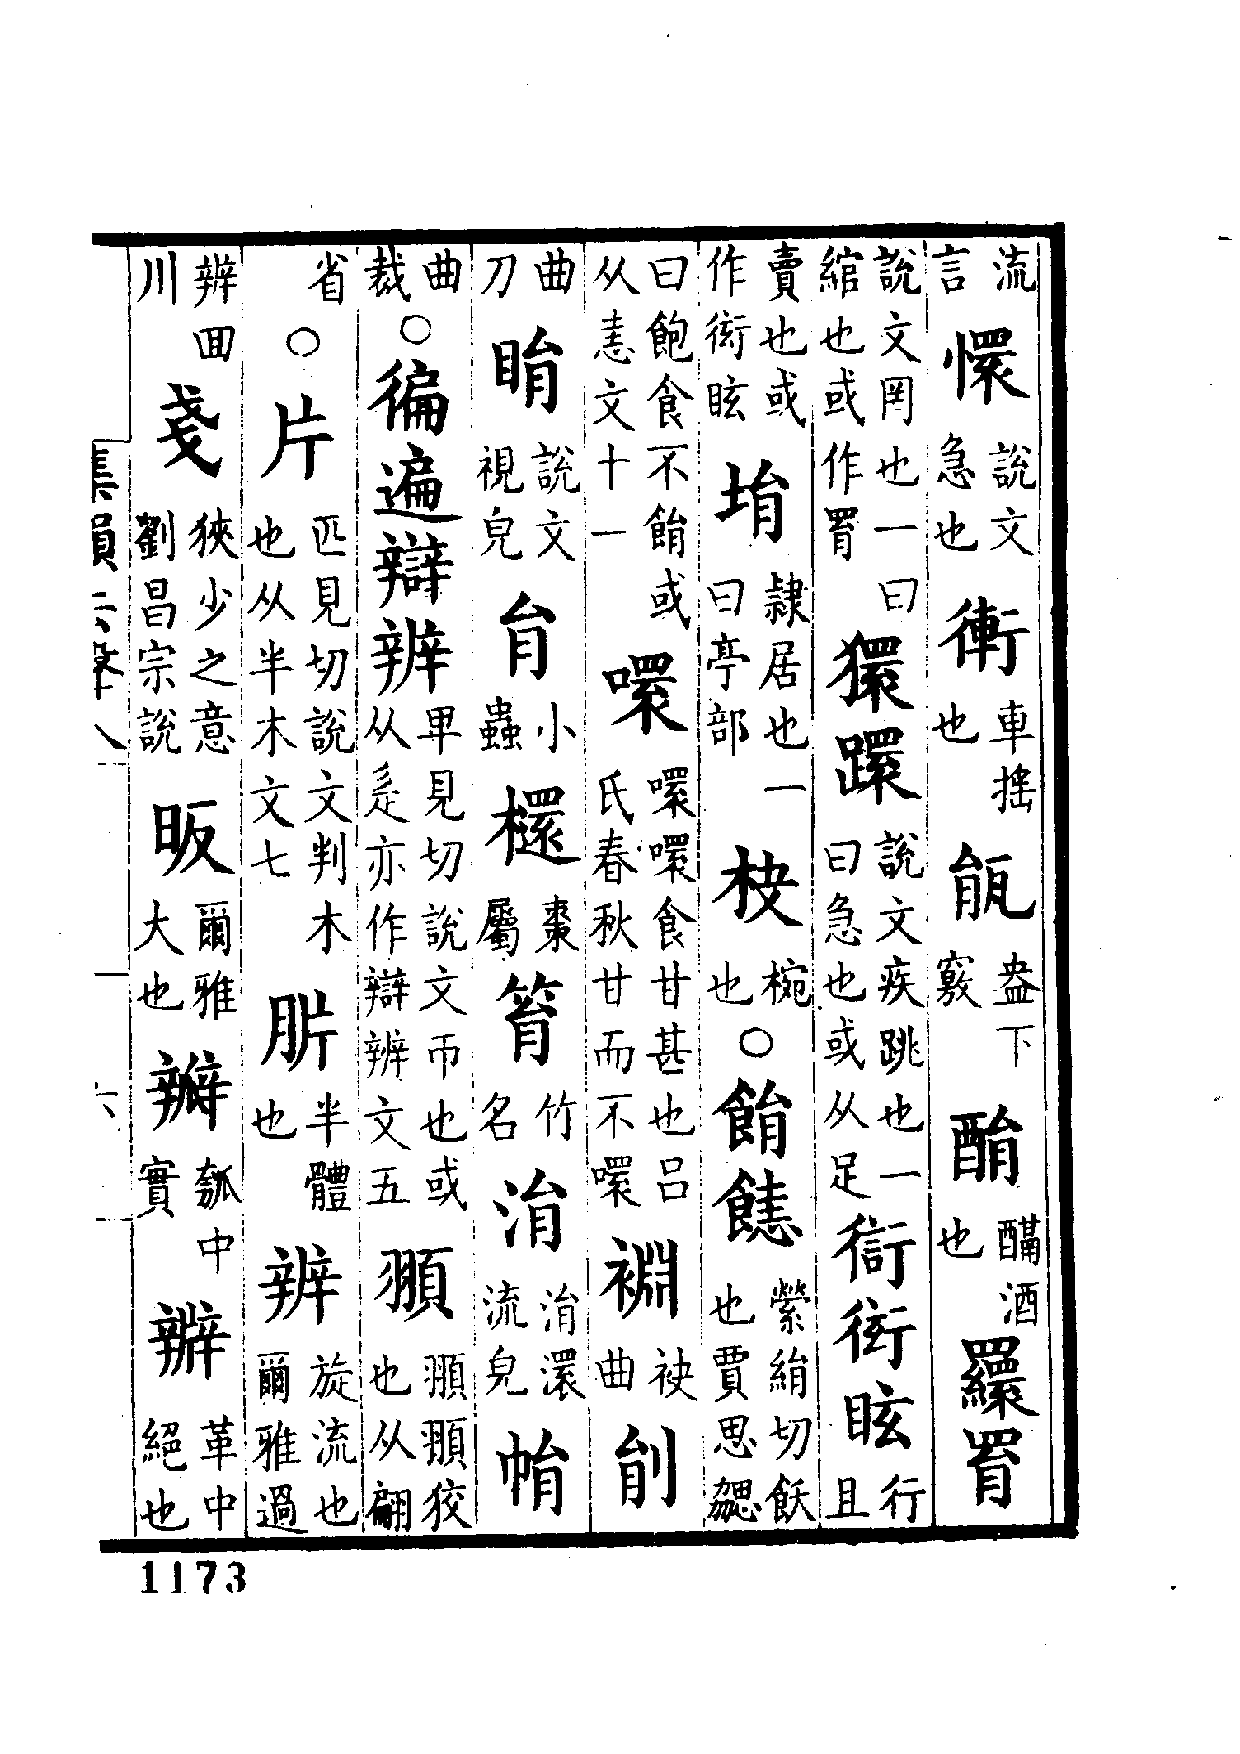 流言懁說文急也衝車摇也瓹盎下竅酳醨酒也羂罥
說文罔也一曰綰也或作罥獧䠣說文疾跳也一曰急也或从足衒衒眩行且
賣也或作衒眩埍隷居也一曰亭部枤椀也○餶䭒縈絹切飫也賈思勰
曰飽食不餶或从恚文十一噮噮噮食甘甚也吕氏春秋甘而不噮裫袂曲剈
曲刀睊說文視皃肙小蟲檈棗屬䈴竹名涓涓澴流皃帩
曲裁○徧遍辯辨卑見切說文帀也或从辵亦作辯辨文五翾翾翾狡也从翩
省○片匹見切說文判木也从半木文七胼半體也辨旋流也爾雅過
辨囬川戔狹少之意劉昌宗說昄爾雅大也瓣瓠中實辦革中絕也
集韻去聲八 六
1173